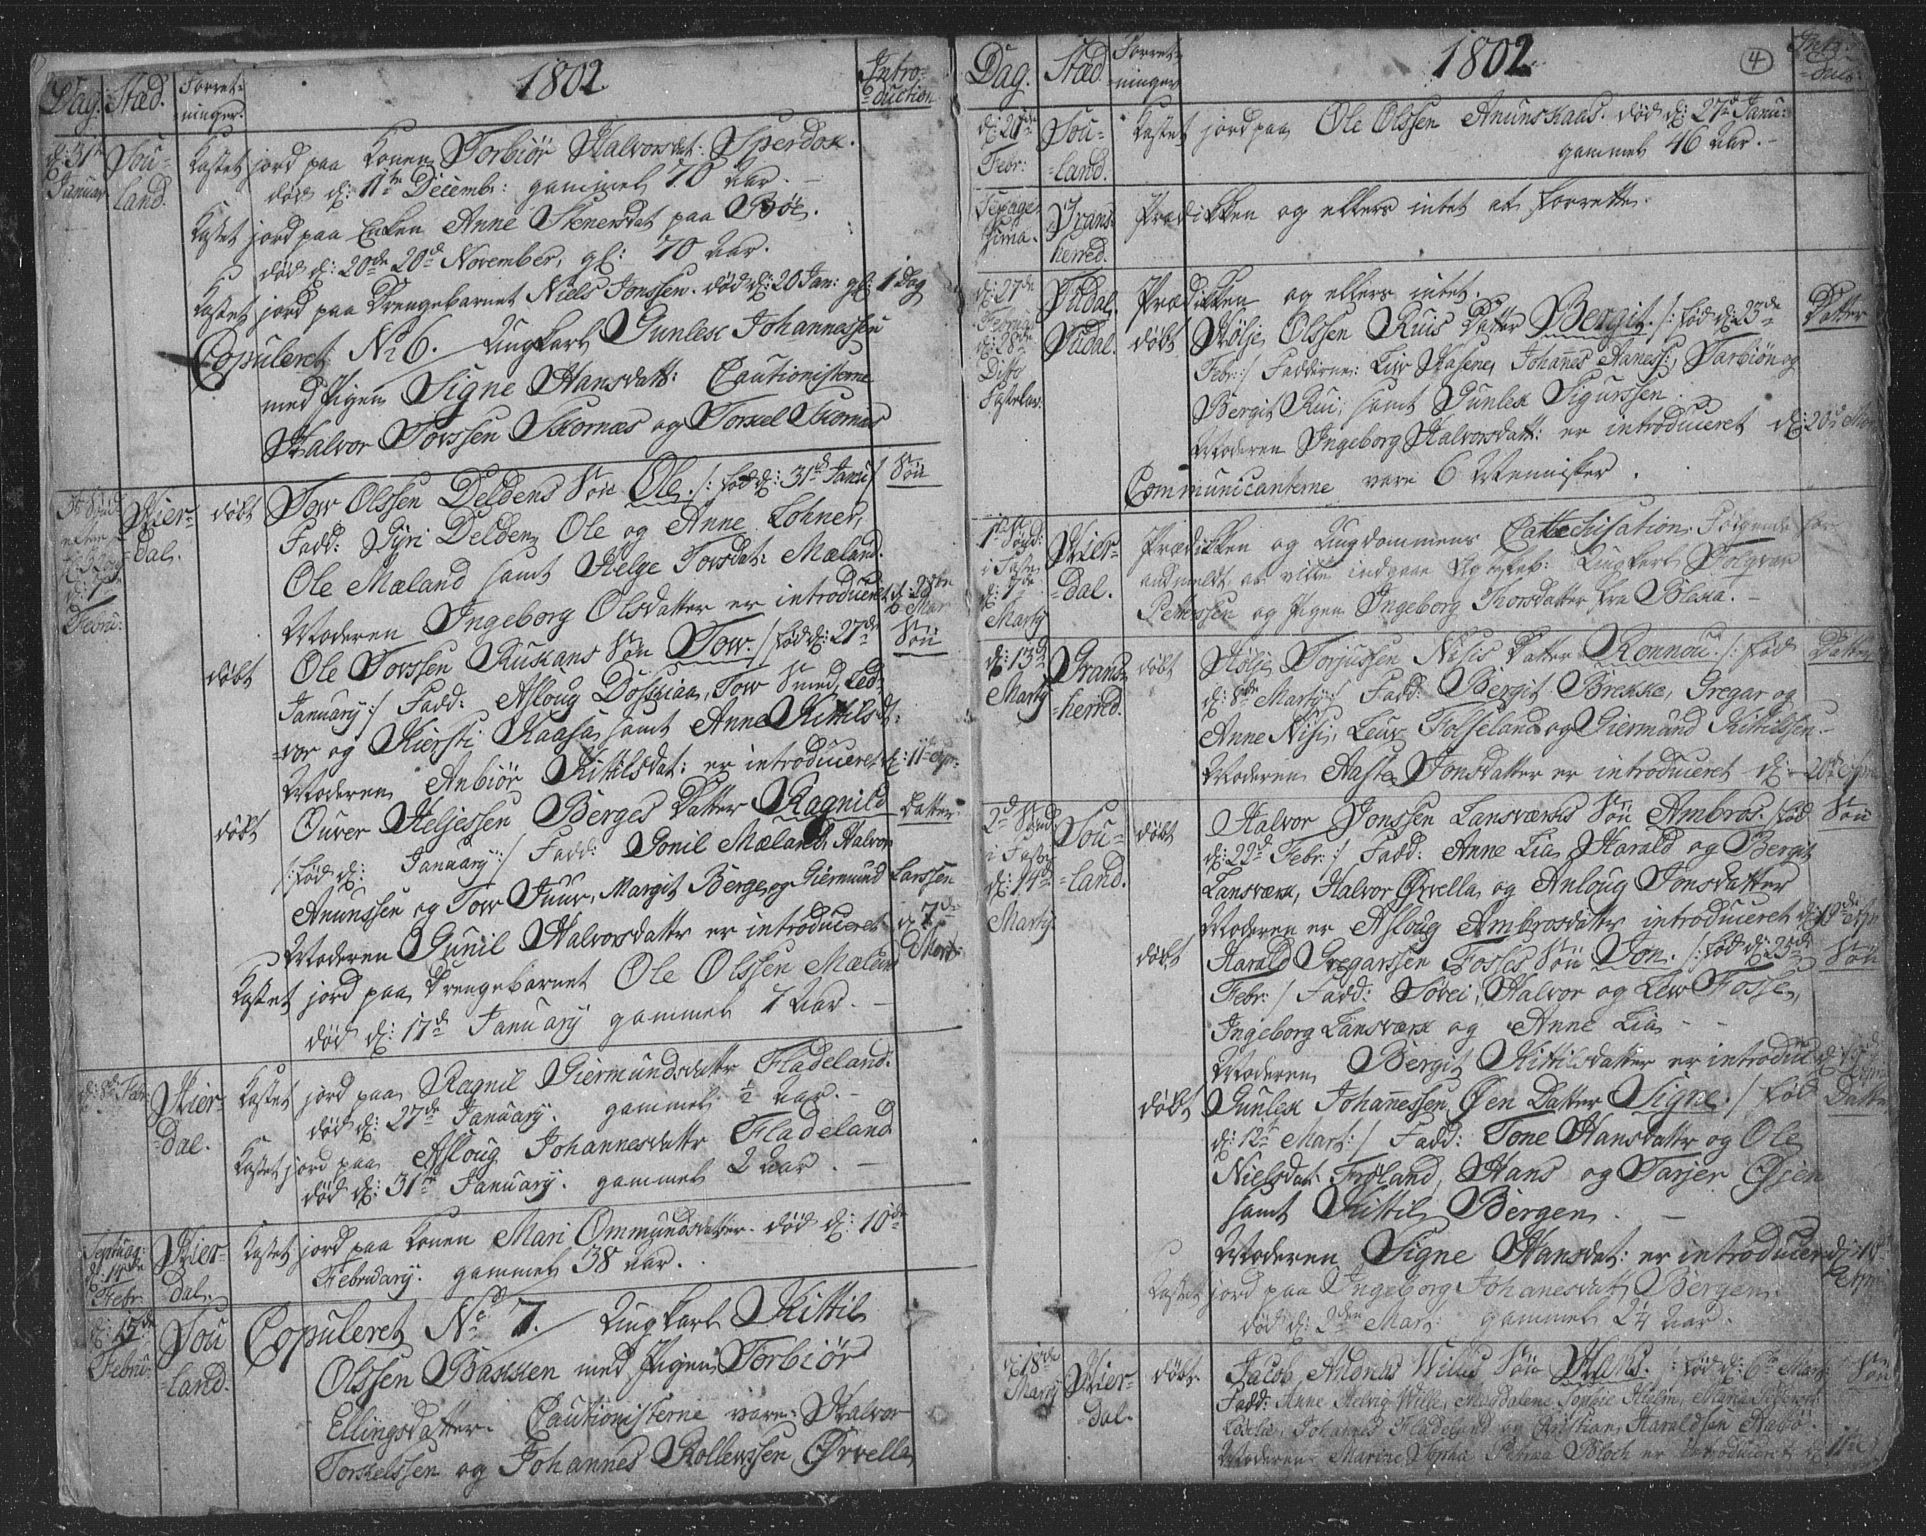 Dag. Stæd. Forret-
ninger.
1802
Intro-
duction
d: 31te Januar. Sou-
land.
Kastet jord paa Konen Torbiør Halvorsdat: Sperdok.
død d: 11te Decembr: gammel 70 Aar. –
Kastet jord paa Enken Anne Stenersdat paa Bøe.
død d: 20de 20d November, gl: 70 Aar.
Kastet jord paa Drengebarnet Niels Jonssen. død d: 20 Jan: gl: 1 Dag
Copuleret No 6. Ungkarl Gunlek Johannessen
med Pigen Signe Hansdatt: Cautionisterne
Halvor Torssen Skornæs og Torkel Skornæs
Hier-
dal.
døbt Tow Olssen Deldens Søn Ole. /: fød d: 31te Janu:/ Søn
Fadd: Gyri Delden, Ole og Anne Lohner,
Ole Mæland samt Helge Torsdat: Mæland.
Moderen Ingeborg Olsdatter er introduceret d. 28de Mar
døbt Ole Torssen Rukans Søn Tow. /: fød d: 27de Søn
January:/ Fadd: Asloug Dosquaa, Tow Smed, Led-
vor og Kiersti Kaasa samt Anne Kittilsd:
Moderen Anbiør Kittilsdat: er introduceret d: 11te Apr:
døbt Ouver Heljessen Berges Datter Ragnild Datter.
/: fød d: January:/ Fadd: Gonil Mæland, Halvor
Anunssen og Tow Juur, Margit Berge, og Giermund Larssen
Moderen Gunil Halvorsdattr er introduceret d: 7de Mart:
Kastet jord paa Drengebarnet Ole Olssen Mæland
død d: 17de January gammel 7 Aar. –
d: 8d Febr. Hier-
dal.
Kastet jord paa Ragnil Giermundsdattr Fladeland.
død d: 27de January. gammel ½ Aar. –
Kastet jord paa Asloug Johannesdattr Fladeland
død d: 31te January. gammel 2 Aar. –
Septuag:
d: 14de
Febr Hier-
dal.
Kastet jord paa Konen Mari Ommundsdatter. død d: 10de
February. gammel 38 Aar.
d: 15de
Febru: Sou
land.
Copuleret No 7. / Ungkarl Kittil
Olssen Bakken med Pigen Torbiør
Ellingsdatter. Cautionisterne vare Halvor
Torkelssen og Johannes Rollewssen Ørvella
Dag. Stæd Forret-
ninger
1802.
4
d: 21de
Febr: Sou-
land.
Kastet jord paa Ole Olssen Anunskaas. død d: 27d Janu:
gammel 46 Aar. –
Sexage-
sima. Grans-
herred.
Prædikken og ellers intet at forrette.
d: 27de
Tudal. Prædikken og ellers intet.
d: 28de
Dito
Fastelav: Tudal. døbt Hølje Olssen Ruis Datter Bergit. /: fød d: 23de Datter
Febr:/ Fadderne: Liw Haasene, Johanes Haness:, Tarbiøn og
Bergit Rui, samt Gunlek Sigurssen.
Moderen Ingeborg Halvorsdatt: er introduceret d: 20d Mar
Communicanterne vare 6 Mennisker.
1te Sønd:
i Faste
d: 7de
Marty Hier-
dal.
Prædikken og Ungdommens Catechisation. Følgende har
anmeldt at ville indgaae Ægteskab: Ungkarl Tolgrav
Petterssen og Pigen Ingeborg Thorsdatter fra Bleka. –
d: 13d
Marty Grans-
herred.
døbt Hølje Torjussen Nisis Datter Ronnou. /: fød Datter
d: 8de Marty:/ Fadd: Bergit Brekke, Gregar og
Anne Nisi, Leuv Folseland og Giermund Kittilssen –
Moderen Aaste Jonsdatter er introduceret d: 20de Apr
2d Sønd:
i Faste
d: 14d
Marty. Sou-
land.
døbt Halvor Jonssen Lansværks Søn Ambros. /: fød Søn
d: 22d Febr:/ Fadd: Anne Lia, Harald og Bergit
Lansværk, Halvor Ørvella og Anloug Jonsdatter
Moderen er Asloug Ambrosdattr introduceret d: 19de Apr
døbt Harald Gregarssen Fosses Søn Jon. /: fød d: 25de Søn
Febr:/ Fadd: Søvei, Halvor og Lew Fosse,
Ingeborg Lansværk og Anne Lia –
Moderen Bergit Kittilsdatter er introdu
døbt Gunlek Johannessen Øen Datter Signe. /: fød Datter
d: 12te Mart:/ Fadd: Tone Hansdattr og Ole
Nielsdat: Frøland, Hans og Tarjer Øjen
samt Kittil Bergen. –
Moderen Signe Hansdat: er introducer d: 18
Kastet jord paa Ingeborg Johanesdat: Bergen.
død d: 2den Mart: gammel 2¼ Aar.
d: 18de
Marty Hier-
dal.
døbt. Jacob Andreas Willes Søn Hans. /: fød d: 6te Mar: Søn
Fadd: Anne Helvig Wille, Magdalene Sophie Holm, Maria
Johannes Fladeland og Christian Haraldsen Aabø. –
Moderen Marine Bloch er introduceret d: 11te